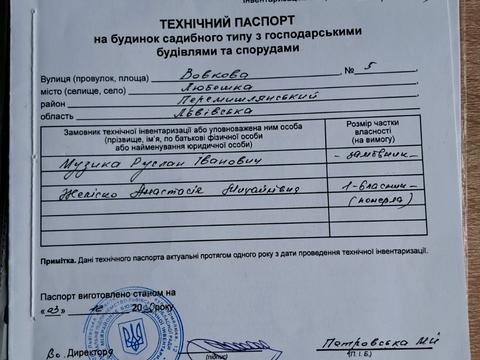 Інвентаризаці
ТЕХНІЧНИЙ ПАСПОРТ
на будинок садибного типу з господарськими
будівлями та спорудами
Вулиця (провулок, площа) Вовкова № 5
місто (селище, село) Любешка
район Перемишлянський
область Львівська
Замовник технічної інвентаризації або уповноважена ним особа
(прізвище, ім'я, по батькові фізичної особи
або найменування юридичної особи)
Розмір частки
власності
(на вимогу)
Музика Руслан Іванович - замовник -
Желіско Анастасія Михайлівна 1-власник-
(померла)
Примітка. Дані технічного паспорта актуальні протягом одного року з дати проведення технічної інвентаризації.
Паспорт виготовлено станом на
«03» року
Во. Директора
(підпис)
Петровська М.Й
(П.І.Б.)